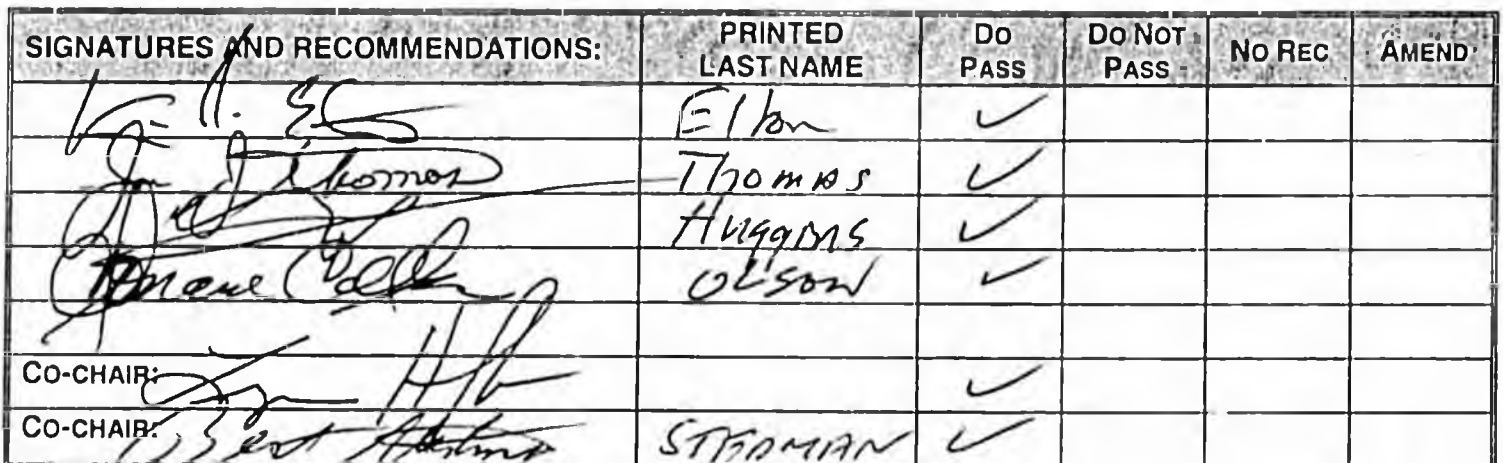 SIGNATURES AND RECOMMENDATIONS: PRINTED LAST NAME DO PASS DO NOT PASS NO REC AMEND
Elton ✓
Thomas Thomas ✓
Huggins ✓
OLSON ✓
CO-CHAIR: ✓
CO-CHAIR: Bert STEDMAN ✓